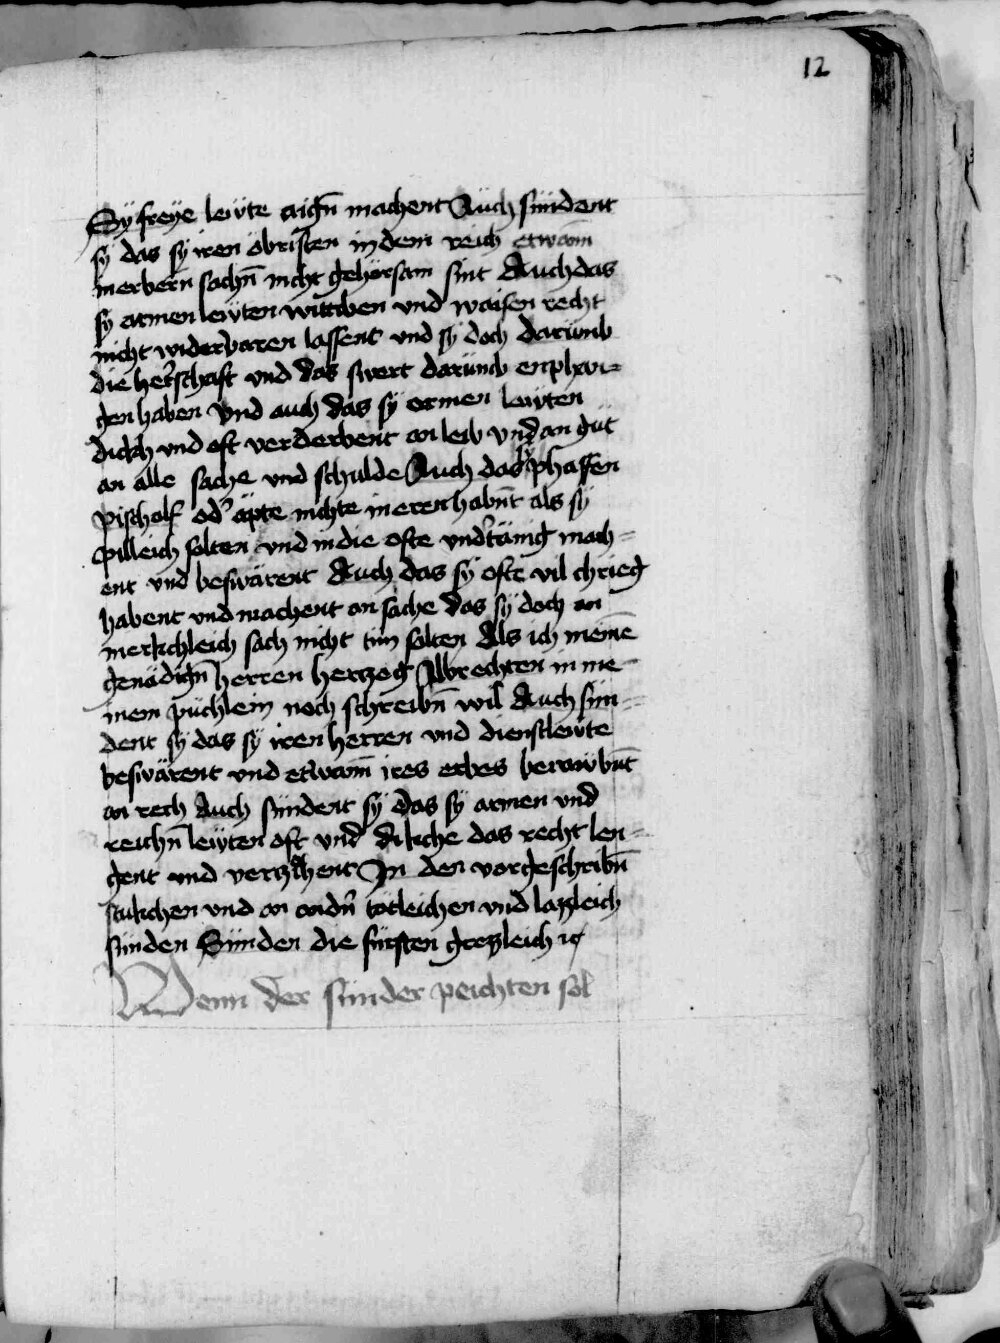 12
Sÿ freÿe lewte aign̄ machent Auch sündent
sÿ das sÿ iren öbristen in dem reich etwann
in erbern sachn̄ nicht gehorsam sint Auch das
sÿ armen lewten wittiben vnd waisen recht
nicht widervaren lassent vnd sÿ doch darumb
die herschaft vnd das swert darumb enphan-
gen haben vnd auch das sÿ armen lewten
dikch vnd oft verderbent an leib vnd an gut
an alle sache vnd schulde Auch das sÿ phaffen
pischolf od' äpte nichte in eren habnt als sÿ
pilleich solten vnd in die ofte vnd'tänig mach-
ent vnd beswärent Auch das sÿ ofte vil chrieg
habent vnd machent an sache das sÿ doch an
merkchleich sach nicht tün solten Als ich meinē
genädign̄ herren hertzog Albrechten in me-
inem püchlein noch schreibn̄ wil Auch sün-
dent sÿ das sÿ iren herren vnd dienstlewte
beswärent vnd etwann ires erbes berawbnt
an rech Auch sündent sÿ das sÿ armen vnd
reichn̄ lewten oft vnd dikche das recht len-
gent vnd verzihent In den vorgeschribn̄
stukchen vnd an andn̄ tötleichen vnd lazzleich
sünden Sünden die fürsten grozzleich
Wenn der sunder peichten sol